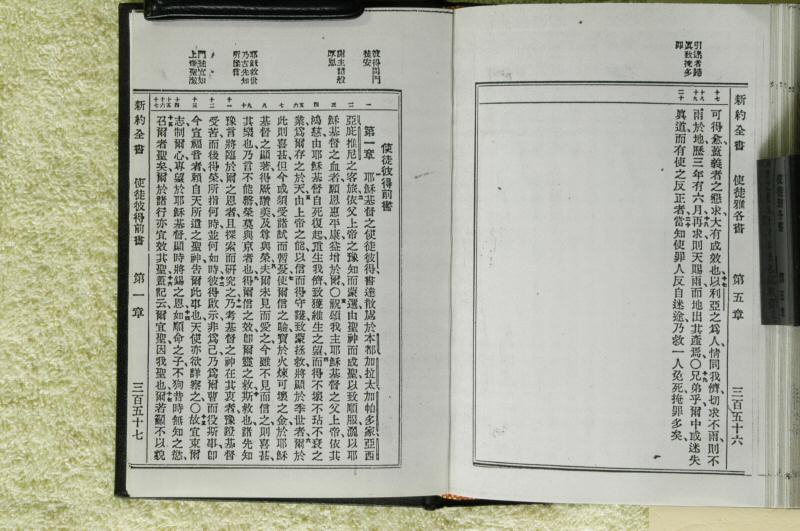 引迷者歸
眞致掩多
罪
新約全書
使徒雅各書
第五章
三百五十六
十七
十八
十九
二十
可得愈蓋義者之懇求大有成效也以利亞之爲人情同我儕切求不雨則不
雨於地歷三年有六月再求則天賜雨而地出其產焉〇兄弟乎爾中或迷失
眞道而有使之反正者當知使罪人反自迷途乃救一人免死掩罪多矣
彼得問門
徒安
謝主諸般
厚恩
耶穌救世
乃古先知
所豫言
門徒宜知
上帝聖潔
新約全書
使徒彼得前書
第一章
三百五十七
使徒彼得前書
第一章
耶穌基督之使徒彼得書達散處於本都加拉太加帕多家亞西
亞庇推尼之客旅依父上帝之豫知而蒙選由聖神而成聖以致順服灑以耶
穌基督之血者願恩惠平康益增於爾〇祝頌我主耶穌基督之父上帝依其
鴻慈由耶穌基督自死復起重生我儕致獲維生之望而得不壞不玷不衰之
業爲爾存之於天由上帝之能以信而得守護致蒙拯救將顯於季世者爾於
此則喜甚但今或須受諸試而暫憂使爾信之驗寶於火煉可壞之金於耶穌
基督之顯著得厥讚美及尊與榮夫爾未見而愛之今雖不見而信之則喜甚
其樂也乃言不能罄榮莫與京者也得爾信之效卽爾靈之救斯救也諸先知
豫言將臨於爾之恩者且探索而研究之乃考基督之神在其衷者豫證基督
受苦而後得榮所指何時並何如時彼得啟示非爲己乃爲爾曹而役斯事卽
今宣福音者賴自天所遣之聖神吿爾此事也天使亦欲詳察之〇故宜束爾
志制爾心專望於耶穌基督顯時將錫之恩如順命之子不狥昔時無知之慾
召爾者聖矣爾於諸行亦宜效其聖蓋記云爾宜聖因我聖也爾若籲不以貌